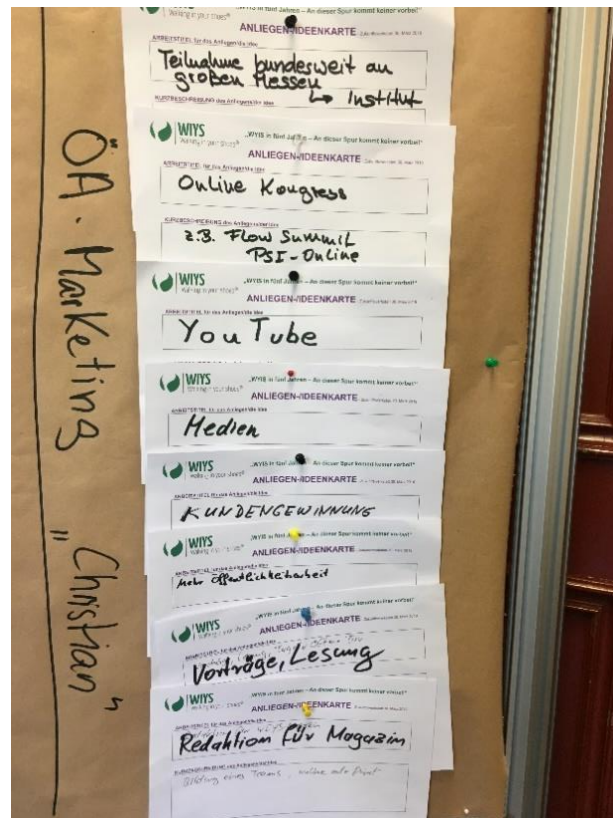 ÖA. Marketing „Christian“
walking in your shoes®
in fünf Jahren – An dieser Spur kommt keiner vorbei!"
ANLIEGEN-IDEENKARTE
ARBEITSTITEL für das Anliegen/die Idee
Teilnahme bundesweit an
großen Messen
KURZBESCHREIBUNG des Anliegens/der Idee
↳ Institut
WIYS
walking in your shoes®
„WYIS in fünf Jahren – An dieser Spur kommt keiner vorbei!"
ANLIEGEN-/IDEENKARTE
ARBEITSTITEL für das Anliegen/die Idee
Online Kongress
KURZBESCHREIBUNG des Anliegens/der Idee
z.B. Flow Summit
PSI-Online
WIYS
walking in your shoes®
„WYIS in fünf Jahren – An dieser Spur kommt keiner vorbei!"
ANLIEGEN-/IDEENKARTE
ARBEITSTITEL für das Anliegen/die Idee
YouTube
WIYS
walking in your shoes®
„WYIS in fünf Jahren – An dieser Spur kommt keiner vorbei!"
ANLIEGEN-/IDEENKARTE
ARBEITSTITEL für das Anliegen/die Idee
Medien
WIYS
walking in your shoes®
„WYIS in fünf Jahren – An dieser Spur kommt keiner vorbei!"
ANLIEGEN-/IDEENKARTE
ARBEITSTITEL für das Anliegen/die Idee
KUNDENGEWINNUNG
WIYS
walking in your shoes®
„WYIS in fünf Jahren – An dieser Spur kommt keiner vorbei!"
ANLIEGEN-/IDEENKARTE
ARBEITSTITEL für das Anliegen/die Idee
Mehr Öffentlichkeitsarbeit
WIYS
walking in your shoes®
„WYIS in fünf Jahren – An dieser Spur kommt keiner vorbei!"
ANLIEGEN-/IDEENKARTE
Vorträge, Lesung
WIYS
walking in your shoes®
„WYIS in fünf Jahren – An dieser Spur kommt keiner vorbei!"
ANLIEGEN-/IDEENKARTE
ARBEITSTITEL für das Anliegen/die Idee
Redaktion für Magazin
KURZBESCHREIBUNG des Anliegens/der Idee
Bildung eines Teams, online oder Print